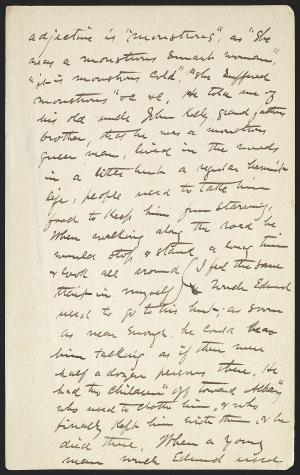 adjective is "monstrous", as "She
was a monstrous smart woman",
"it is monstrous cold", "She suffered
monstrous" &c &c, He told me of
his old uncle John Kelly, grand fathers
brother, that he was a monstrous
queer man, lived in the woods
in a little hut a regular hermit
life, people used to take him
food to keep him from starving,
When walking along the road he
would stop & stand a long time
& look all around (I feel the same
thing in myself) Uncle Edmund
used to go to his hut, as soon
as near enough, he could hear
him talking as if there were
half a dozen persons there, He
had two children off toward
who used to clothe him, & who
finally kept him with them, & he
died there, When a young
man uncle Edmund